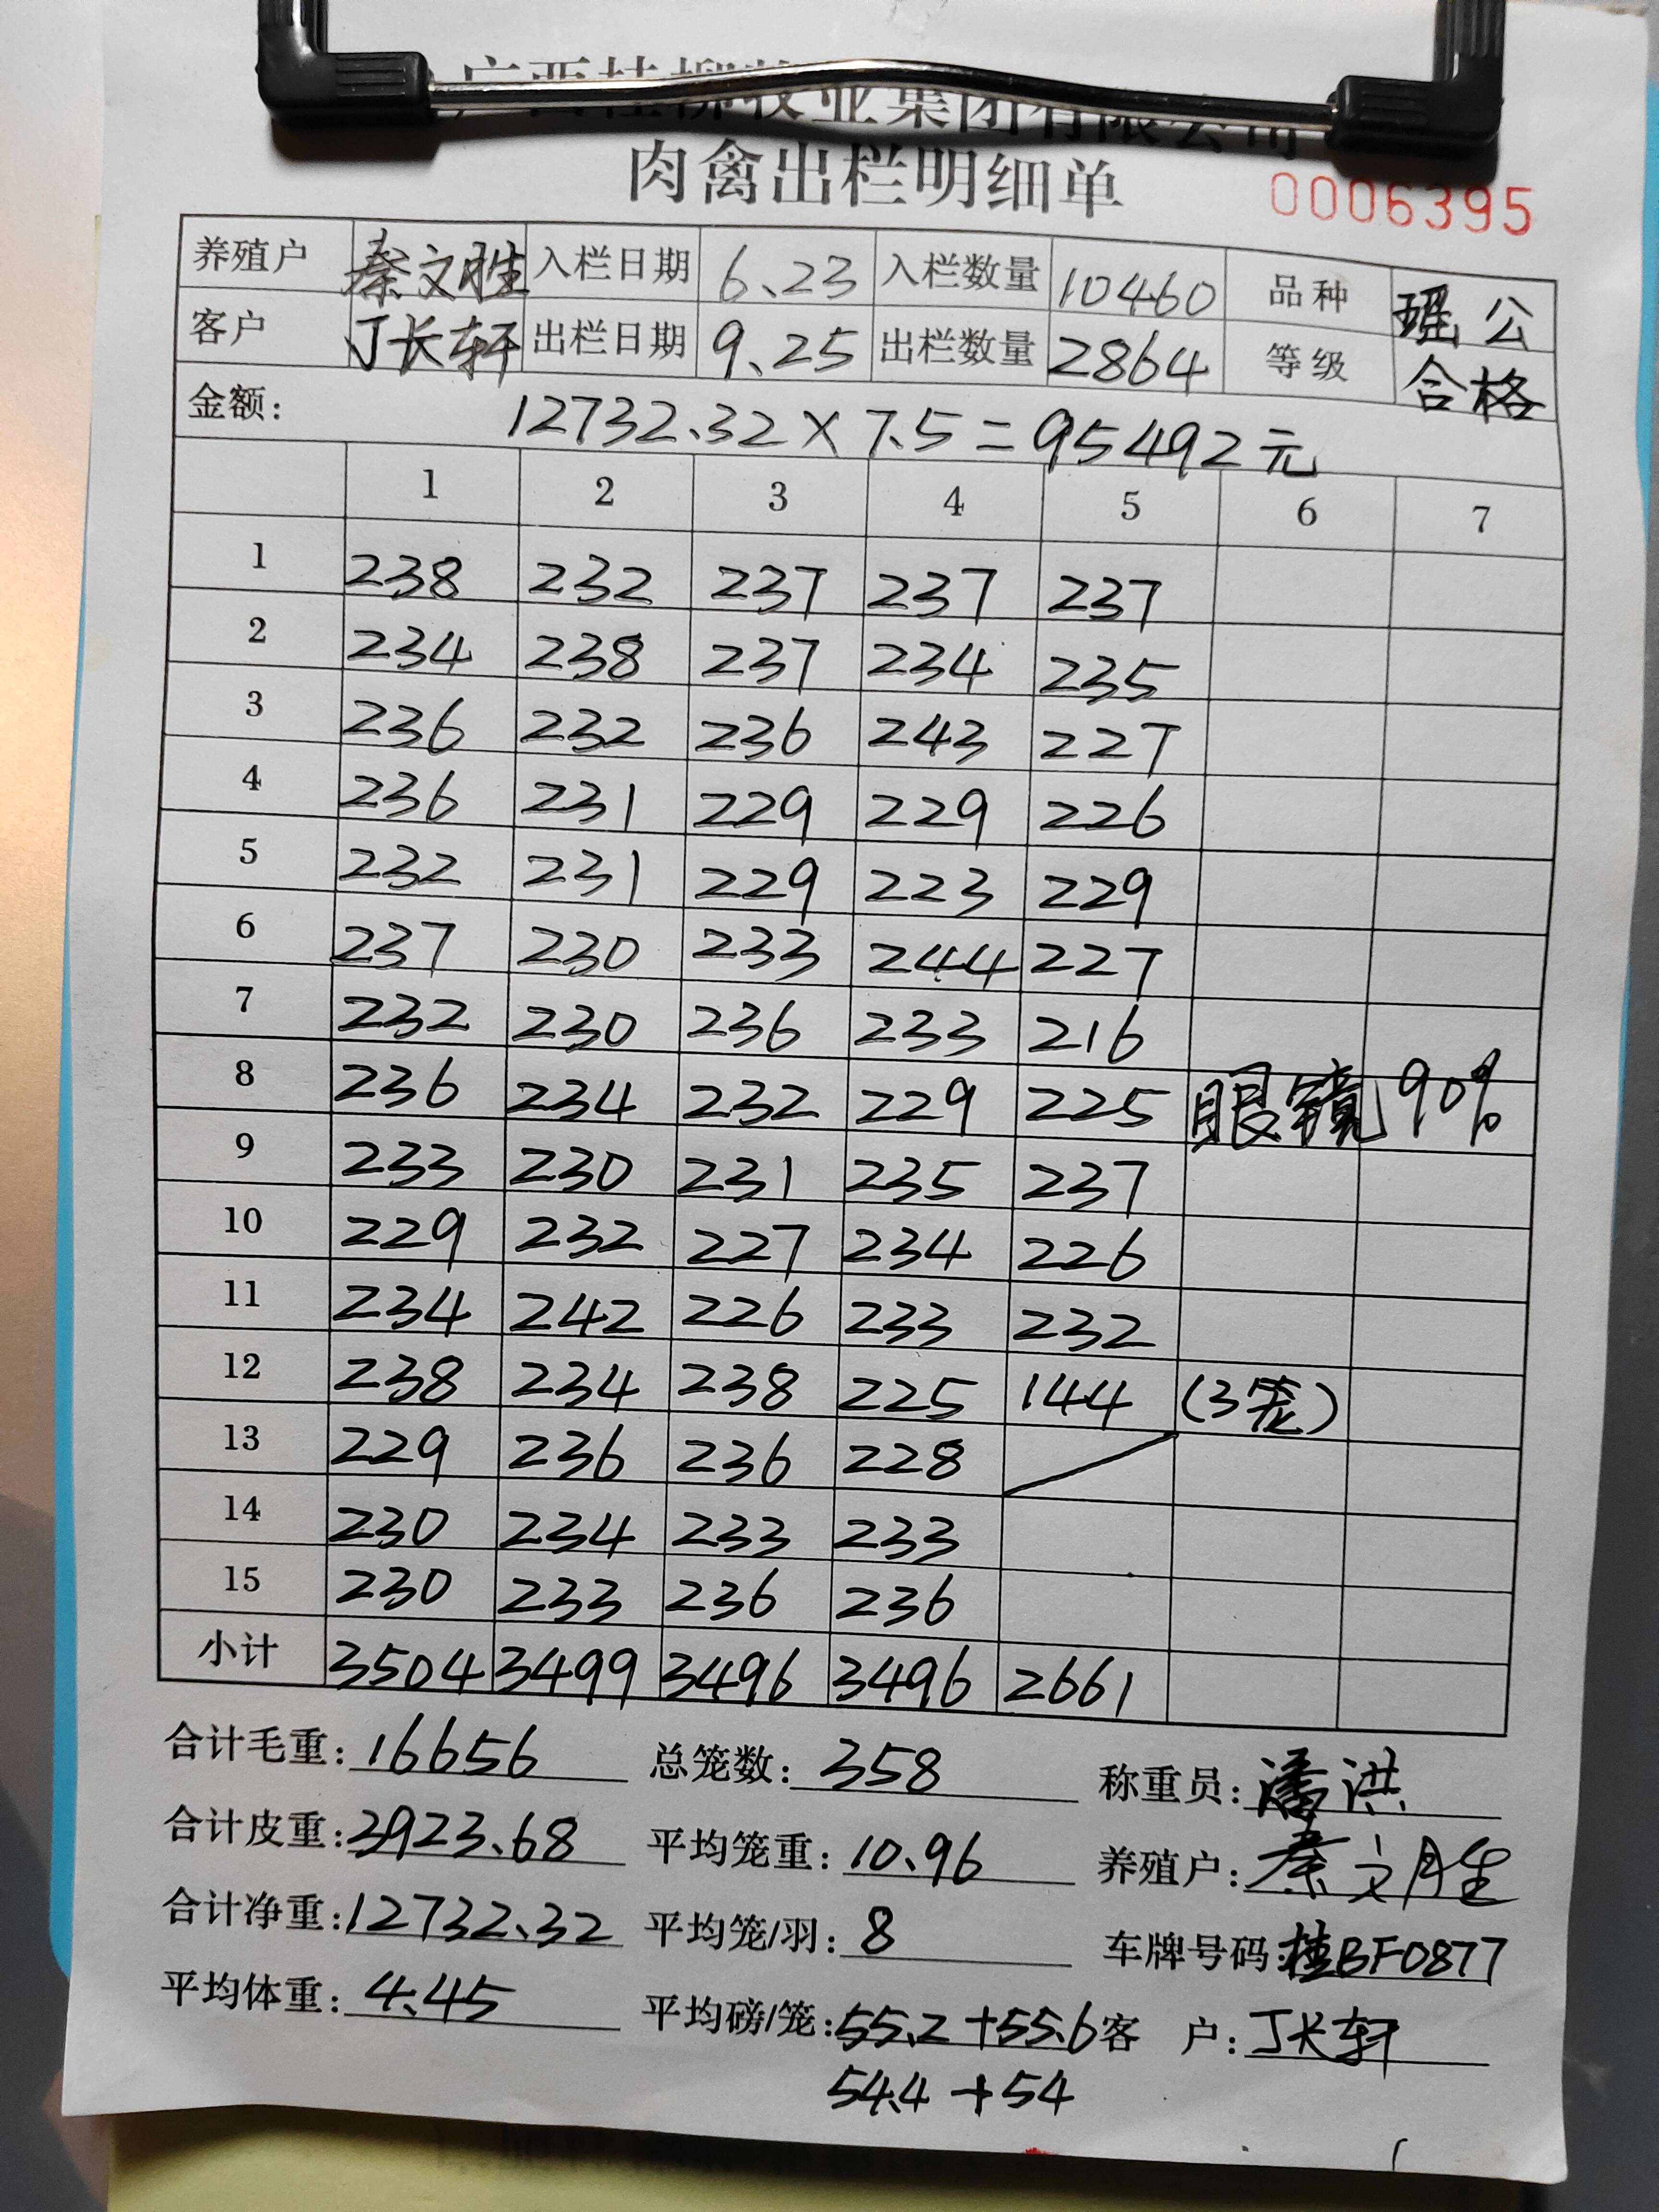 广西桂柳牧业集团有限公司
肉禽出栏明细单
0006395
养殖户 秦文胜 入栏日期 6.23 入栏数量 10460 品种 瑶公
客户 丁长轩 出栏日期 9.25 出栏数量 2864 等级 合格
金额: 12732.32×7.5=95492元
1 2 3 4 5 6 7
1 238 232 237 237 237
2 234 238 237 234 235
3 236 232 236 243 227
4 236 231 229 229 226
5 232 231 229 223 229
6 237 230 233 244 227
7 232 230 236 233 216
8 236 234 232 229 225 眼镜 90%
9 233 230 231 235 237
10 229 232 227 234 226
11 234 242 226 233 232
12 238 234 238 225 144 (3笼)
13 229 236 236 228
14 230 234 233 233
15 230 233 236 236
小计 3504 3499 3496 3496 2661
合计毛重: 16656 总笼数: 358 称重员: 潘洪
合计皮重: 3923.68 平均笼重: 10.96 养殖户: 秦文胜
合计净重: 12732.32 平均笼/羽: 8 车牌号码: 桂BF0877
平均体重: 4.45 平均磅/笼: 55.2+55.6 客户: 丁长轩
54.4+54